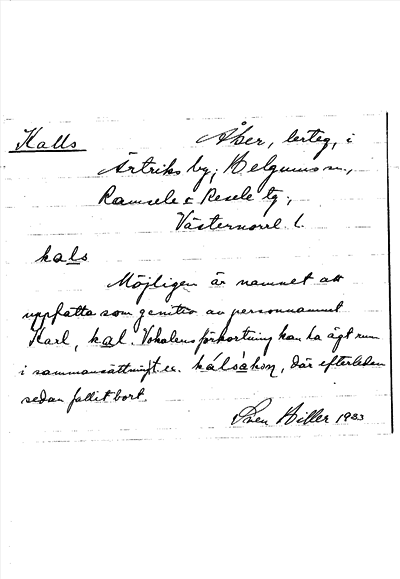 Kalls
Åker, lerteg, i
Ärtriks by, Helgums sn.,
Ramsele & Resele tg,
Västernorrl. l.
kals
Möjligen är namnet att
uppfatta som genitiv av personnamnet
Karl, kal. Vokalens förkortning kan ha ägt rum
i sammansättning t. ex. kálsàkən, där efterleden
sedan fallit bort.
Sven Hiller 1933